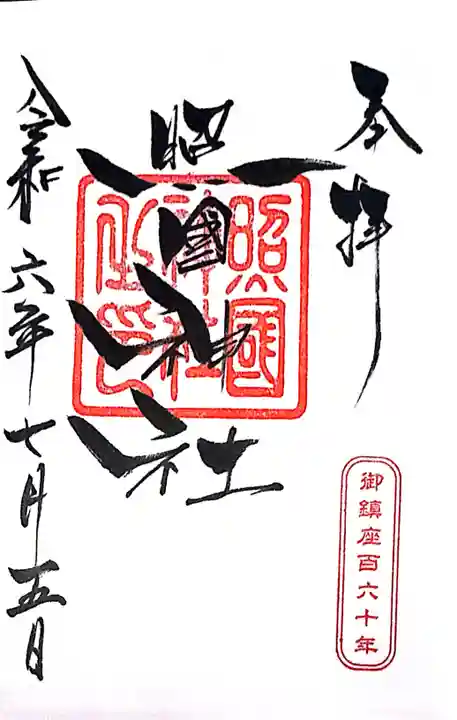 奉拝
照國神社
照國
神社
之印
令和六年七月五日
御鎮座百六十年